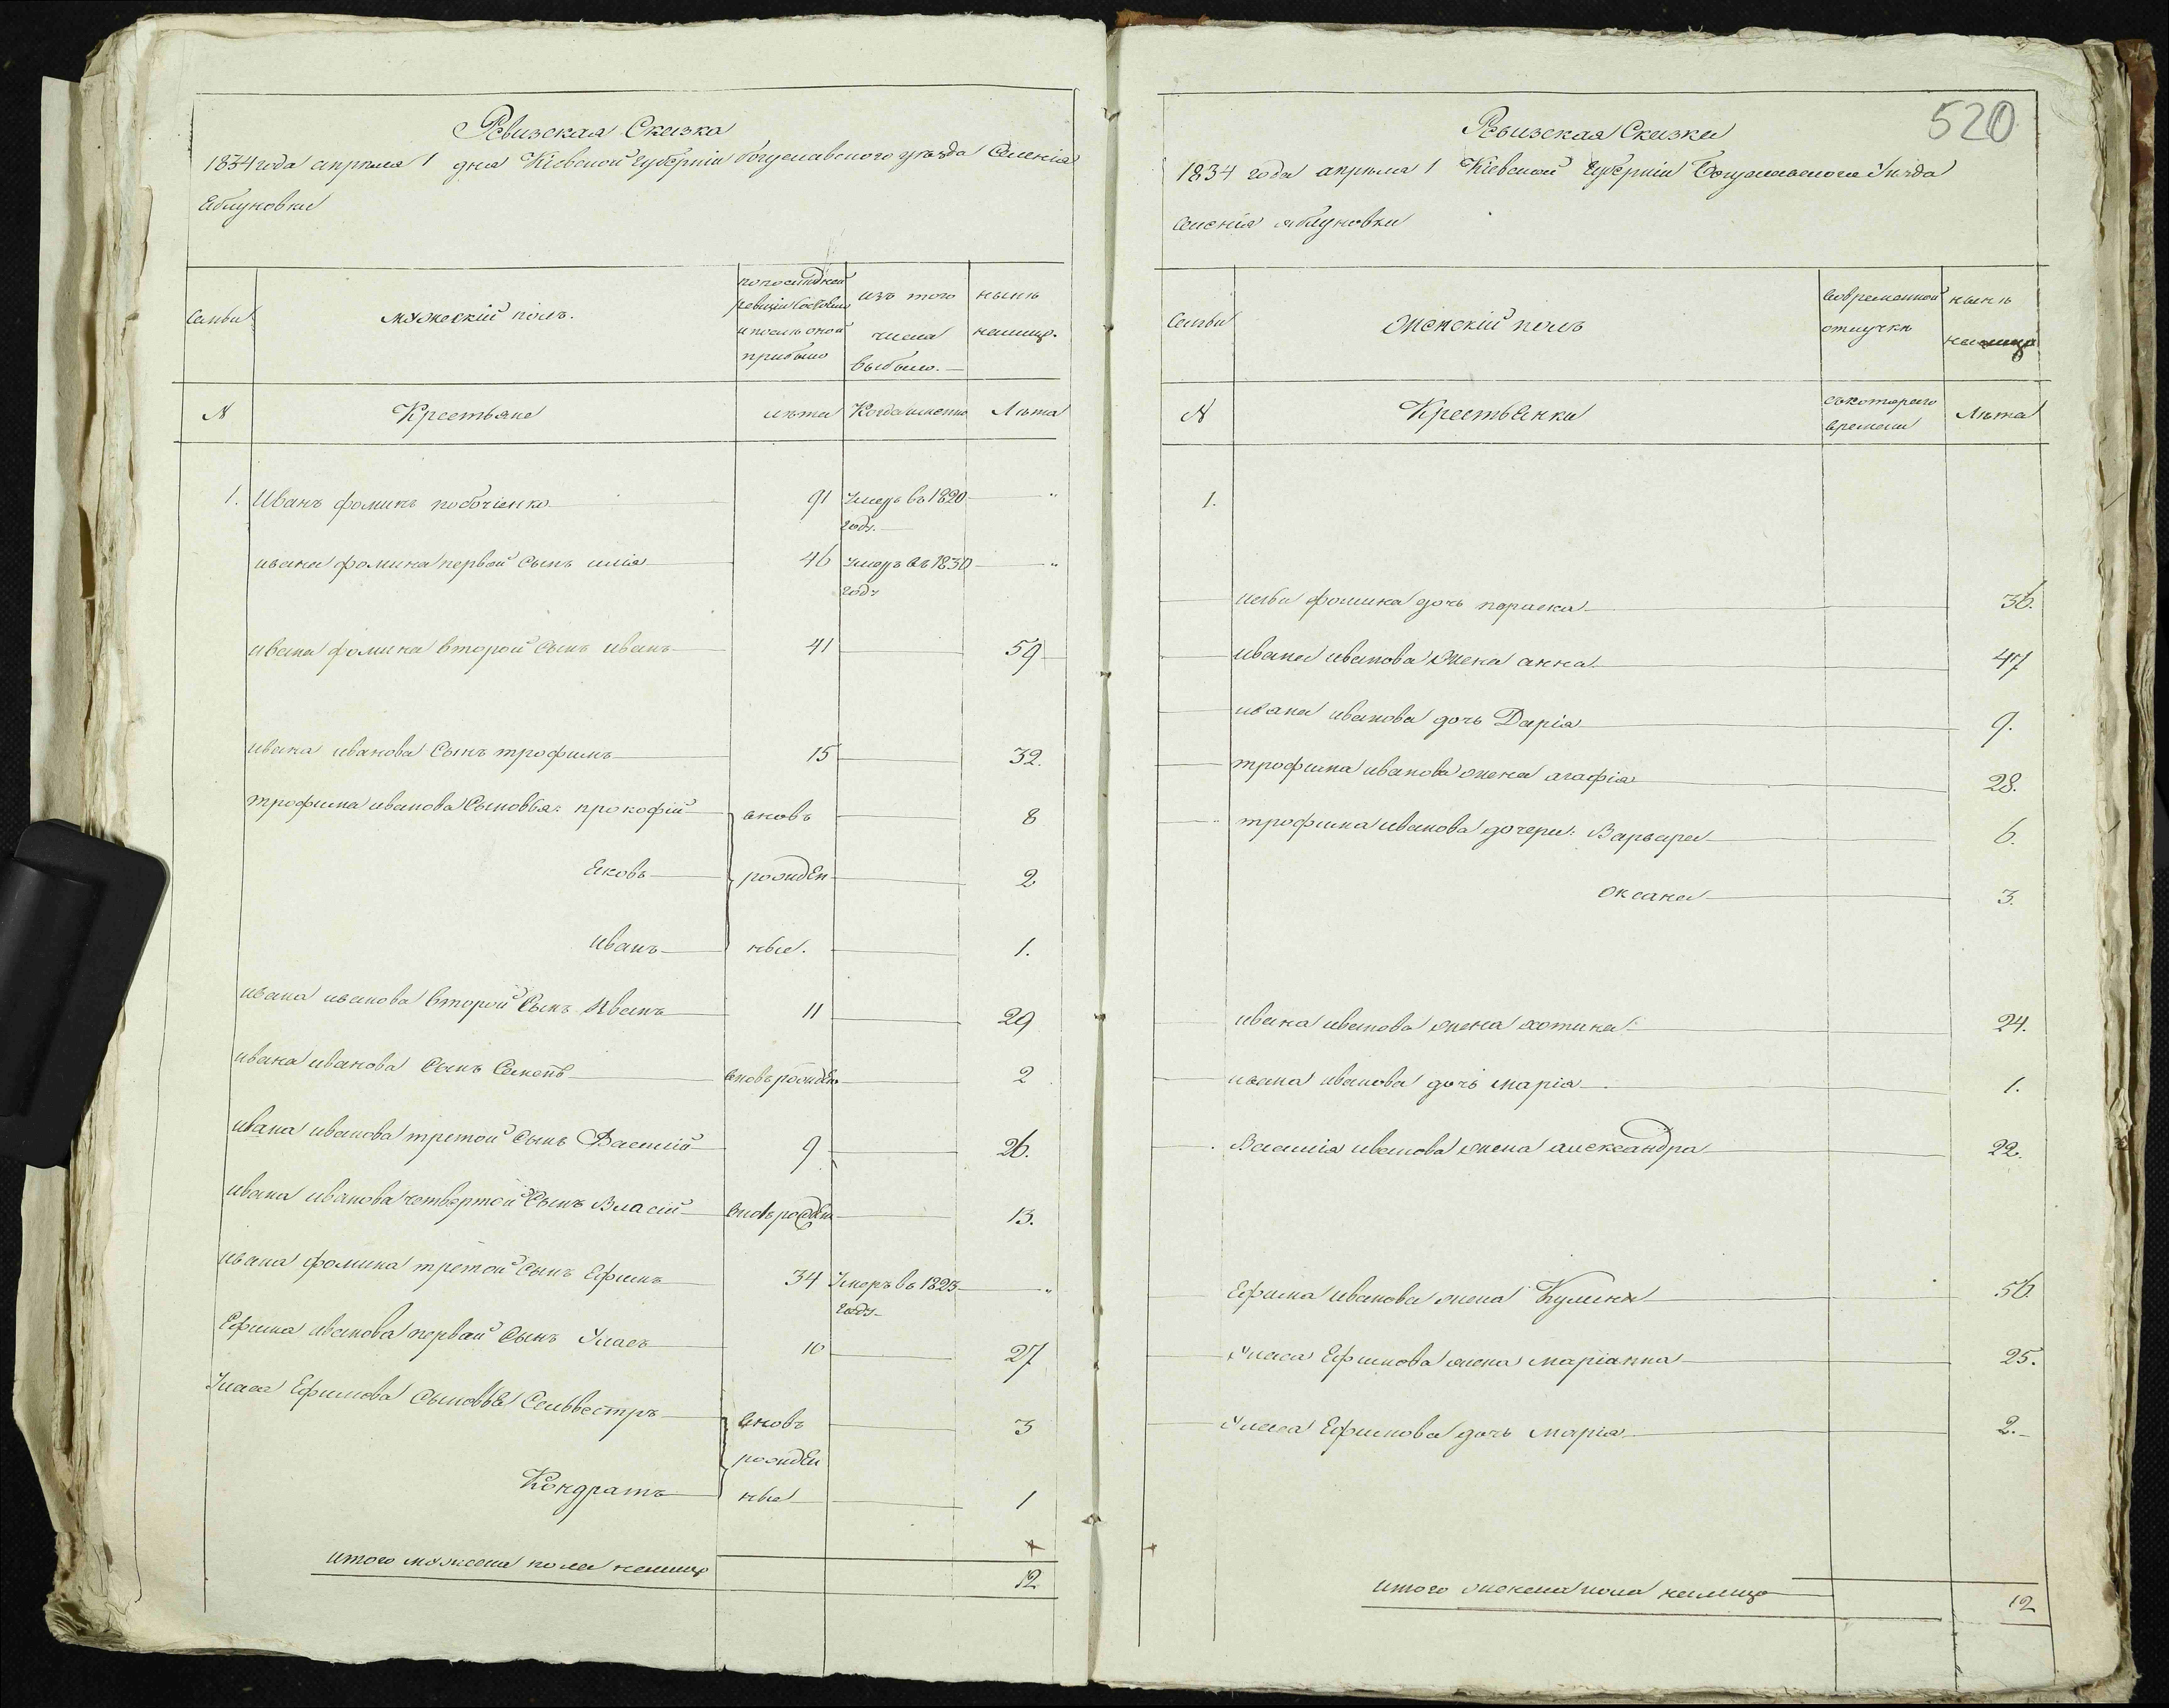 Ревизская Сказка
1834 года апреля 1 дня Кіевской губерніи богуславского уезда Селенія
Яблуновки
Семьи
мужескій полъ.
по последней ревизіи состояло и после оной прибыло
изъ того числа выбыло.
ныне налицо.
№
Крестьяне
лета
Когда именно
Лета
1. Иванъ фоминъ 91 Умеръ въ 1820 году. "
ивана фомина первой сынъ илія 46 Умеръ въ 1830 году "
ивана фомина второй сынъ иванъ 41 59
ивана иванова Сынъ трофимъ 15 32.
трофима иванова Сыновья: прокофій вновь 8
Яковъ рожден 2
иванъ ные. 1.
ивана иванова второй Сынъ Иванъ 11 29
ивана иванова Сынъ Семенъ вновь рожден 2
ивана иванова третой сынъ Василій 9 26.
ивана иванова четвертой Сынъ Власій вновь рожден 13.
ивана фомина третой сынъ Ефимъ 34 Умеръ въ 1823 году "
Ефима иванова первай Сынъ Уласъ 10 27
Уласа Ефимова сыновья Селивестръ вновь 3
рожден
Кондратъ ные 1
итого мужеска пола налицо 12
520
Ревизская Сказка
1834 года апреля 1 Кіевской Губерніи Богуславского Уезда
селенія яблуновки
Семьи
женскій полъ
во временной отлучке
ныне налицо
№
Крестьянки
съ которого времени
Лета
1.
ильи фомина дочь параска 36.
ивана иванова жена анна 47
ивана иванова дочь Дарія 9.
трофима иванова жена агафія 28.
трофима иванова дочери: Варвара 6.
оксана 3.
ивана иванова жена хотина 24.
ивана иванова дочь марія 1.
Василія иванова жена александра 22.
Ефима иванова жена Кулина 56.
Уласа Ефимова жена маріанна 25.
Уласа Ефимова дочь марія 2.
итого женска пола налицо 12